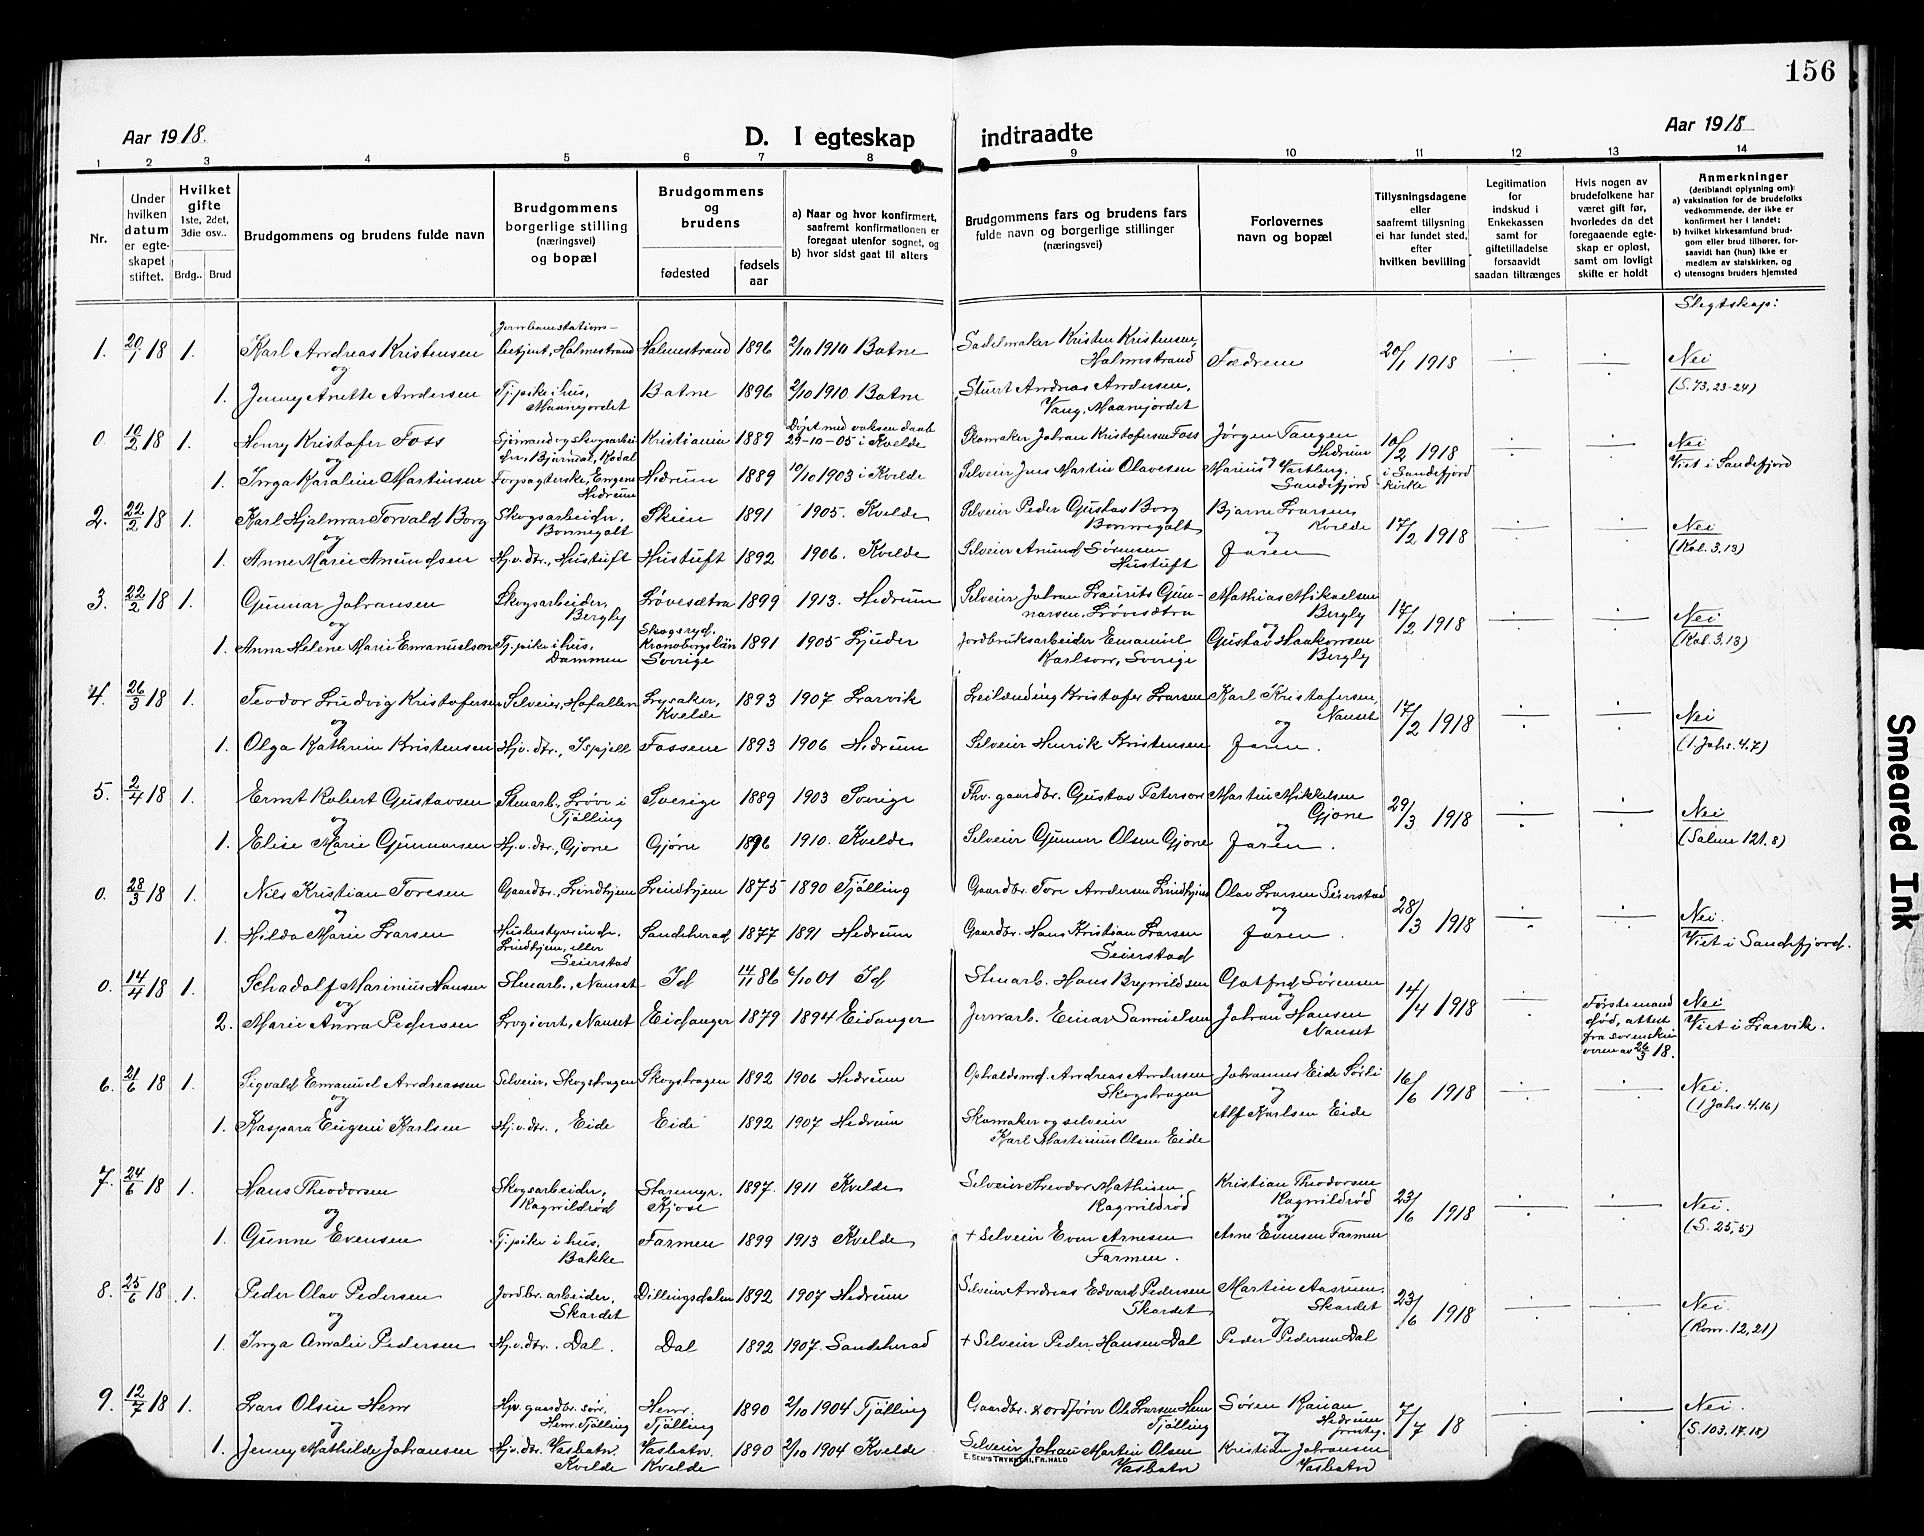 156
Aar 1918.
D. I egteskap
indtraadte
Aar 1918
1 2 3 4 5 6 7 8 9 10 11 12 13 14
Nr.
Under hvilken datum er egteskapet stiftet.
Hvilket gifte 1ste, 2det, 3die osv..
Brdg.. Brud
Brudgommens og brudens fulde navn
Brudgommens borgerlige stilling (næringsvei) og bopæl
Brudgommens og brudens
fødested
fødsels aar
a) Naar og hvor konfirmert, saafremt konfirmationen er foregaat utenfor sognet, og
b) hvor sidst gaat til alters
Brudgommens fars og brudens fars fulde navn og borgerlige stillinger (næringsvei)
Forlovernes navn og bopæl
Tillysningsdagene eller saafremt tillysning ei har fundet sted, efter hvilken bevilling
Legitimation for indskud i Enkekassen samt for giftetilladelse forsaavidt saadan tiltrænges
Hvis nogen av brudefolkene har været gift før, hvorledes da det foregaaende egteskap er opløst, samt om lovligt skifte er holdt
Anmerkninger (deriblandt oplysning om):
a) vaksination for de brudefolks vedkommende, der ikke er konfirmert her i landet;
b) hvilket kirkesamfund brudgom eller brud tilhører, forsaavidt han (hun) ikke er medlem av statskirken, og
c) utensogns bruders hjemsted
Slegtskap:
1. 20/1 18 1. Karl Andreas Kristensen Jernbanestationsbetjent, Holmestrand Holmestrand 1896 2/10 1910 Botne Sadelmaker Kristen Kristensen, Holmestrand Fædrene 20/1 1918 Nei
og
1. Jenny Anette Andersen Tj.pike i hus, Maanejordet Botne 1896 2/10 1910. Botne Andreas Andersen, Vaug, Maanejordet (S. 73, 23-24)
0. 10/2 18 1. Henry Kristofer Foss Kristiania 1889 Døpt med voksen daab 29-10-05 i Kvelde Skomaker Johan Kristofersen Foss Jørgen Tangen Hedrum 10/2 1918 i Sandefjord kirke Nei
og
1. Inga Karoline Martinsen Hedrum 1889 10/10 1903 i Kvelde Selveier Jens Martin Olavesen og Marius Sandefjord Viet i Sandefjord
2. 22/2 18 1. Karl Hjalmar Torvald Borg Skogsarbeider, Bonnegolt Skien 1891 1905. Kvelde Selveier Peder Gustav Borg Bonnegolt Bjarne Larsen Kvelde 17/2 1918 Nei
og
1. Anne Marie Amundsen Hj.v.dtr., Hustuft Hustuft 1892 1906. Kvelde Selveier Amund Sørensen Hustuft og Faren (Kol. 3.13)
3. 22/2 18 1. Gunnar Johansen Skogsarbeider, Bergly Løvesætra 1899 1913. Hedrum Selveier Johan Laurits Gunnarsen, Løvesætra Mathias Mikaelsen Bergly 17/2 1918 Nei
og
1. Anna Helene Marie Emanuelson Tj.pike i hus, Dammen Skogsryd, Kronoborgslän Sverige 1891 1905 Ljuder Jordbruksarbeider Emanuel Karlson, Sverige og Gustav Haakonsen Bergly (Kol. 3.13)
4. 26/3 18 1. Teodor Ludvig Kristofersen Selveier, Hofallen Lysaker, Kvelde 1893 1907 Larvik Leilænding Kristofer Larsen Karl Kristofersen, Nanset 17/2 1918 Nei
og
1. Olga Kathrin Kristensen Hj.v.dtr., Ispjell Fossene 1893 1906 Hedrum Selveier Henrik Kristensen og Faren. (1 Johs. 4.7)
5. 2/4 18 1. Ernst Robert Gustavsen Stenarb., Løve i Tjølling Sverige 1889 1903 Sverige Fhv. gaardbr. Gustav Peterson Martin Mikkelsen Gjone 29/3 1918 Nei
og
1. Elise Marie Gunnarsen Hj.v.dtr., Gjone Gjone 1896 1910. Kvelde Selveier Gunnar Olsen Gjone og Faren. (Salme 121.8)
0. 28/3 18 1. Nils Kristian Toresen Gaardbr., Lindhjem Lindhjem 1875 1890 Tjølling Gaardbr. Tore Andersen Lindhjem Olav Larsen Seierstad 28/3 1918 Nei.
og
1. Hilda Marie Larsen Husbestyrerinde, Lindhjem, eller Seierstad Sandeherad 1877 1891 Hedrum Gaardbr. Hans Kristian Larsen Seierstad og Faren. Viet i Sandefjord.
0. 14/4 18 1. Schadolf Marinius Hansen Stenarb., Nanset Id 14/11 86 6/10 01 Id Stenarb. Hans Brynildsen Gotfred Sørensen 14/4 1918 Første mand død, attest fra sorenskriveren av 26/3 18. Nei
og
2. Marie Anna Pedersen Nanset Eidanger 1879 1894 Eidanger Jernarb. Einar Samuelsen og Johan Hansen Nanset Viet i Larvik.
6. 21/6 18 1. Sigvald Emanuel Andreassen Selveier, Skogshagen Skogshagen 1892 1906 Hedrum Opholdsmd. Andreas Andersen Skogshagen Johannes Eide Sørli 16/6 1918 Nei.
og
1. Kaspara Eugeni Karlsen Hj.v.dtr., Eide Eide 1892 1907 Hedrum Skomaker og selveier Karl Martinius Olsen Eide og Alf Karlsen Eide (1 Johs. 4.16)
7. 24/6 18 1. Hans Theodorsen Skogsarbeider, Ragnvildrød Staremyr. Kjose 1897. 1911 Kvelde Selveier Theodor Mathisen Ragnvildrød Kristian Theodorsen Ragnvildrød 23/6 1918 Nei.
og
1. Gunne Evensen Tj.pike i hus, Bakke Farmen 1899 1913 Kvelde + Selveier Even Arnesen Farmen. og Arne Evensen Farmen (S. 25,5)
8. 25/6 18 1. Peder Olav Pedersen Jordbr.arbeider, Skardet Dillingsdalen 1892 1907 Hedrum Selveier Andreas Edvard Pedersen Skardet Martin Aasrum. Skardet 23/6 1918 Nei.
og
1. Inga Amalie Pedersen Hj.v.dtr. Dal. Dal 1892 1907. Sandeherad + Selveier Peder Hansen Dal og Peder Pedersen Dal (Rom. 12,21)
9. 12/7 18 1. Lars Olsen Hem Hjv. gaardbr. søn, Hem, Tjølling Hem, Tjølling 1890 2/10 1904 Tjølling Gaardbr. & ordfører Ole Larsen Hem Tjølling Søren Hedrum 7/7 18 Nei.
og
1. Jenny Mathilde Johansen Hj.v.dtr. Vasbotn. Kvelde Vasbotn. Kvelde 1890 2/10 1904 Kvelde Selveier Johan Martin Olsen Vasbotn og Kristian Johansen Vasbotn (S. 103, 17.18)
E. SEM'S TRYKKERI, FR.HALD
Smeared Ink